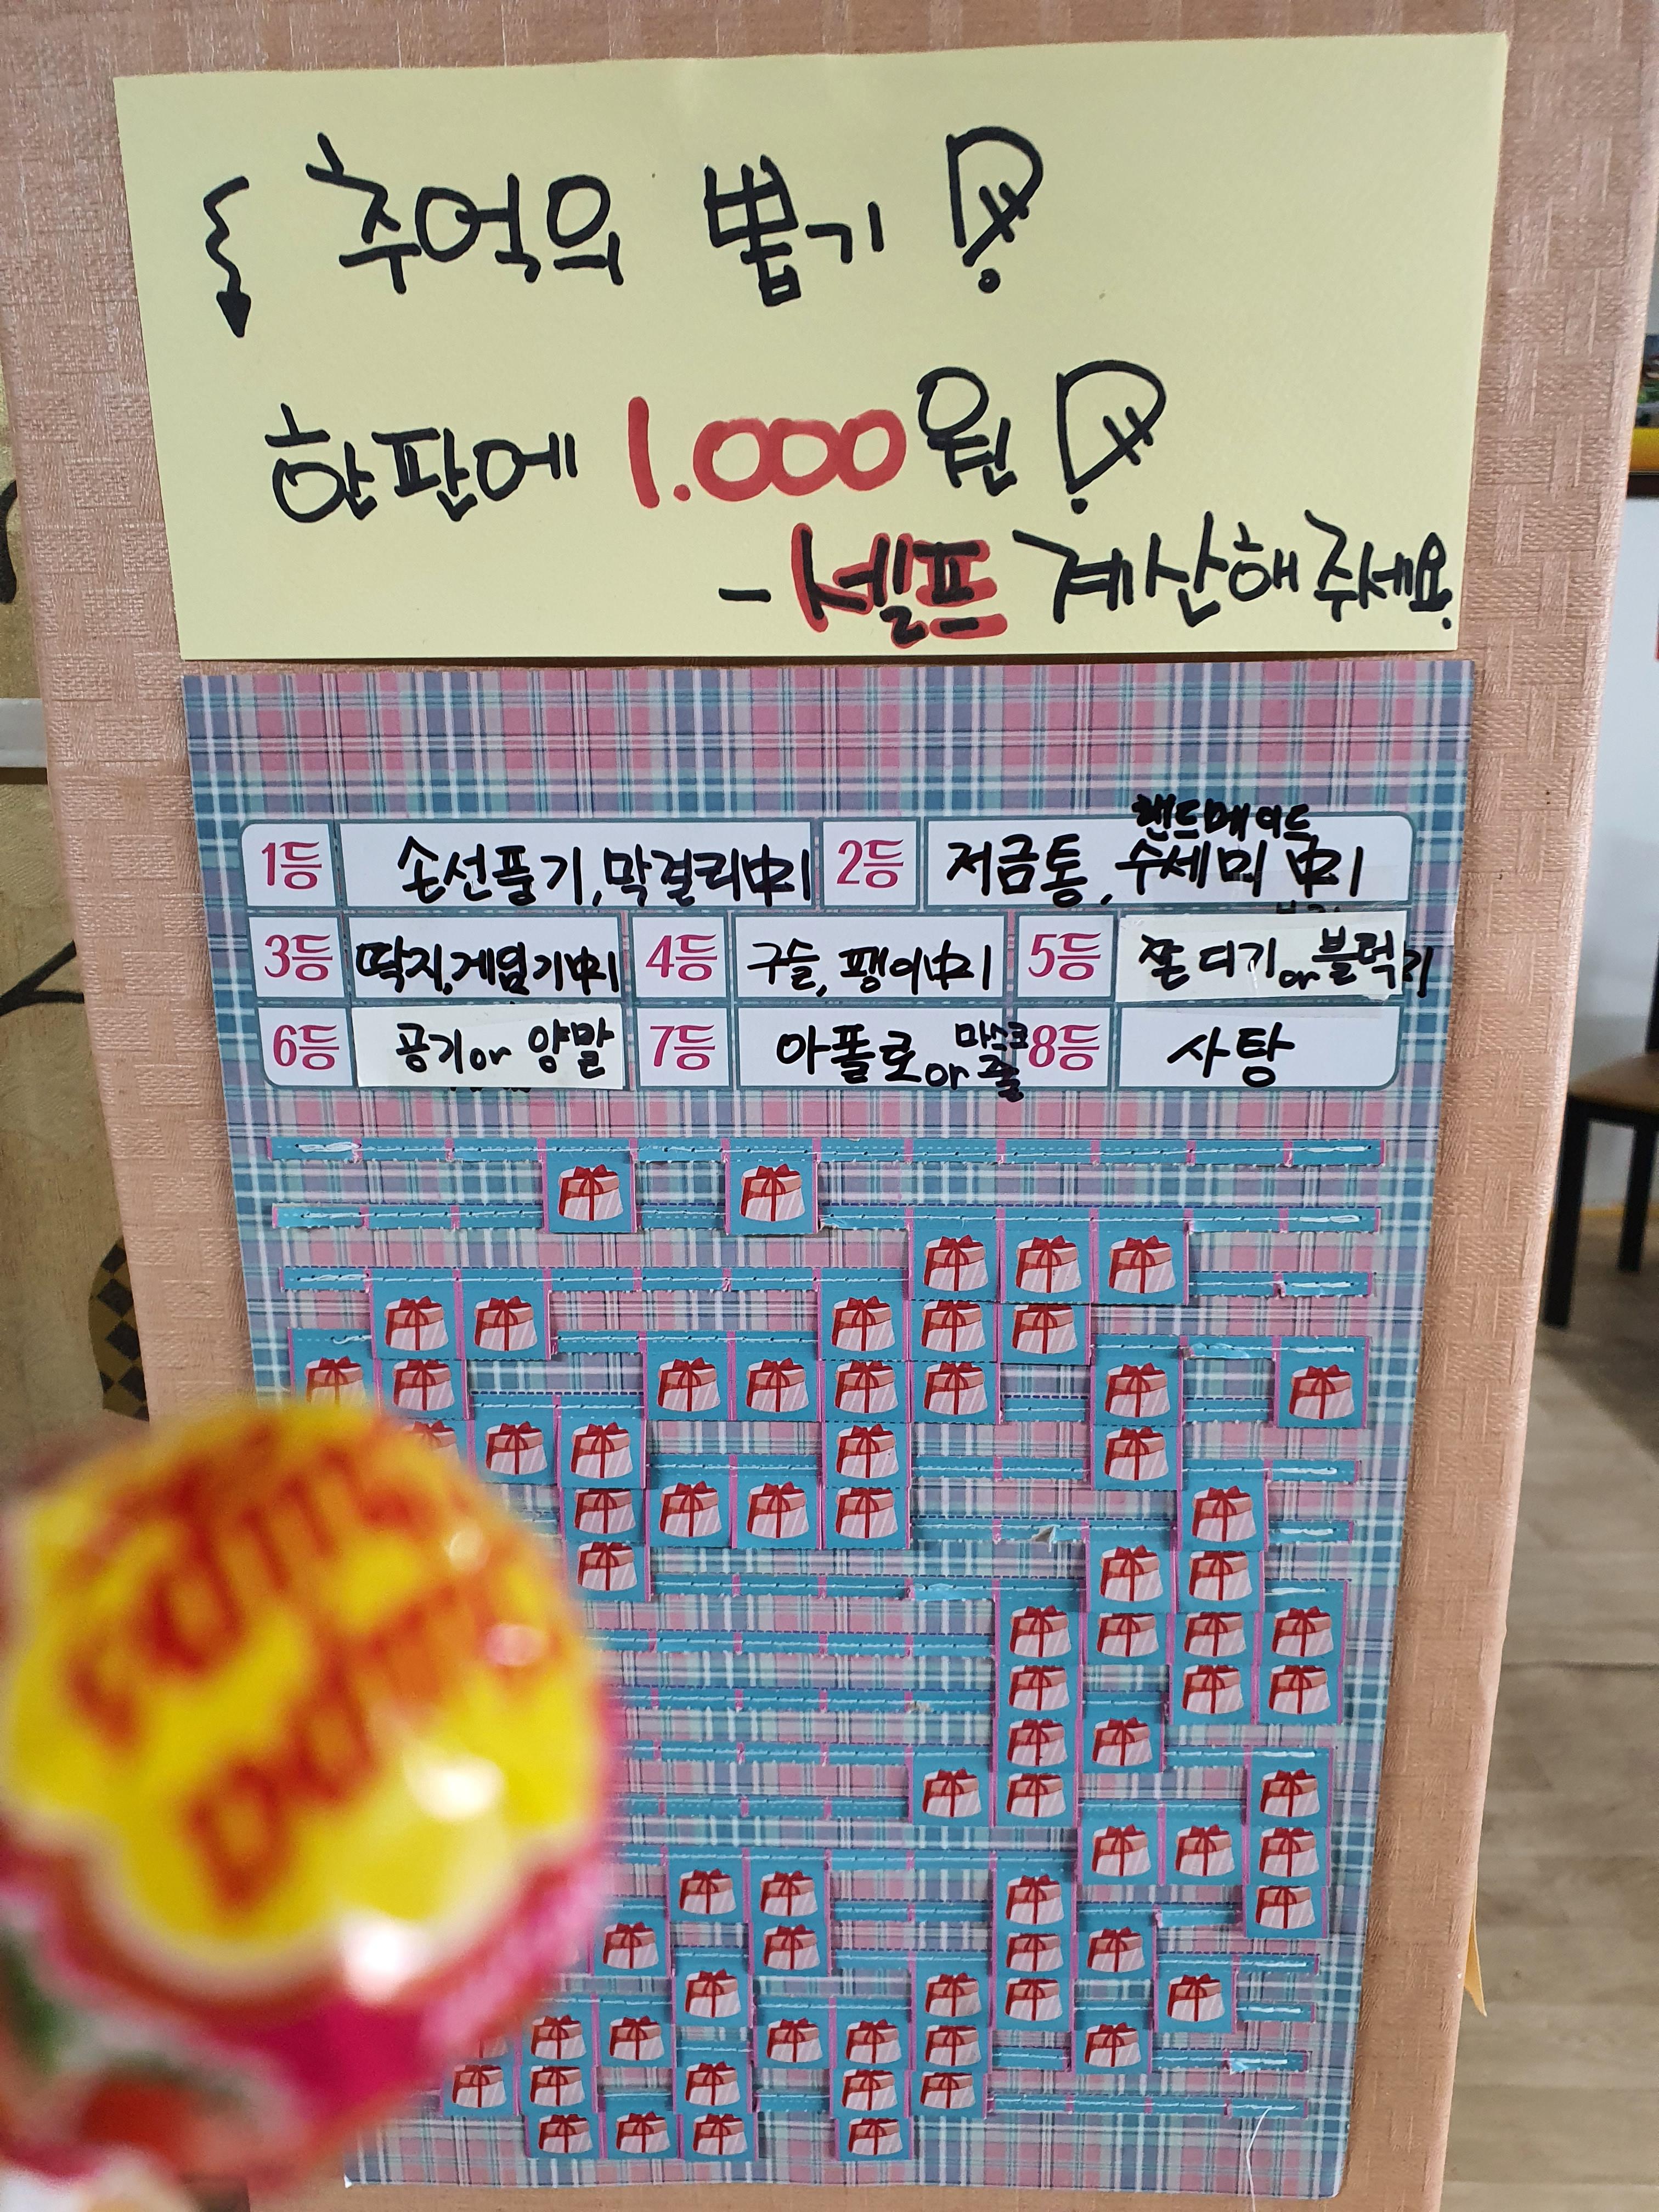 추억의 뽑기!
한판에 1.000원!
- 셀프 계산해주세요.
1등 손선풍기, 막걸리中1 2등 저금통, 핸드메이드 수세미 中1
3등 딱지, 게임기中1 4등 구슬, 팽이中1 5등 쫀디기or블럭
6등 공기or 양말 7등 아폴로 or 마스크줄 8등 사탕